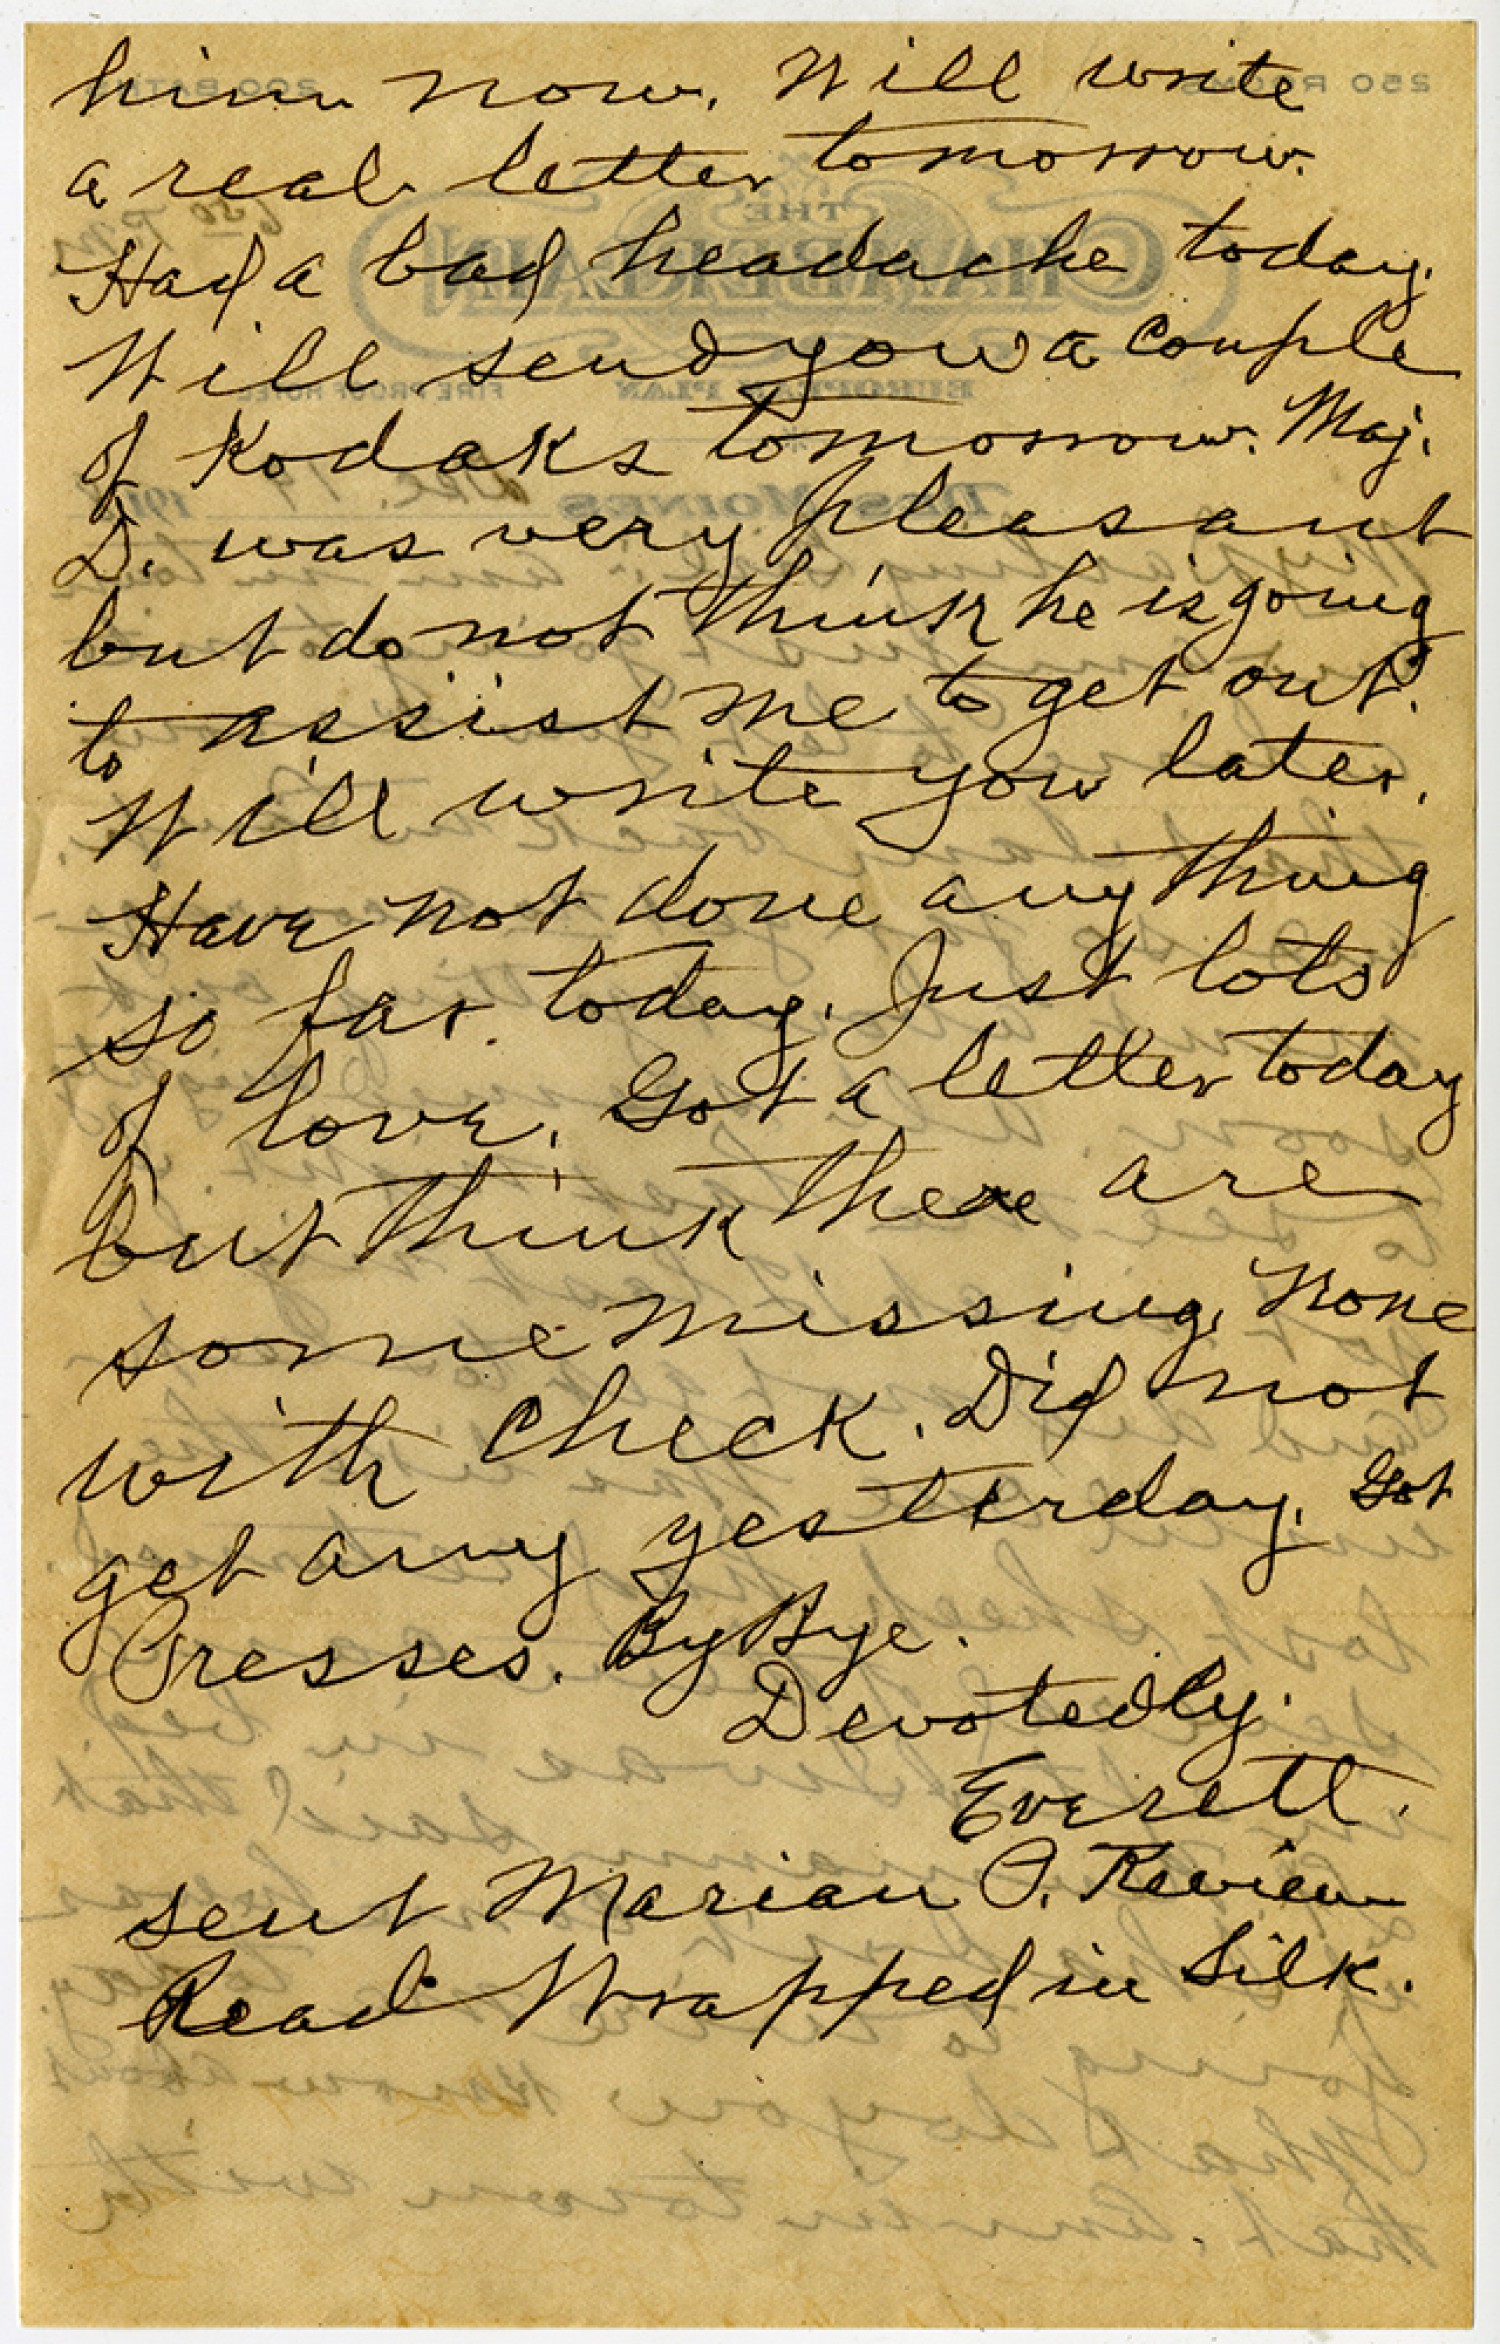 him now. Will write
a real letter tomorrow.
Had a bad headache today.
Will send you a couple
of Kodaks tomorrow. Maj.
D. was very pleasant
but do not think he is going
to assist me to get out.
Will write you later.
Have not done anything
so far today. Just lots
of love. Got a letter today
but think there are
some missing. None
with check. Did not
get any yesterday. Got
Presses. By Bye.
Devotedly.
Everett.
sent Marian P. Review
Read Wrapped in Silk.